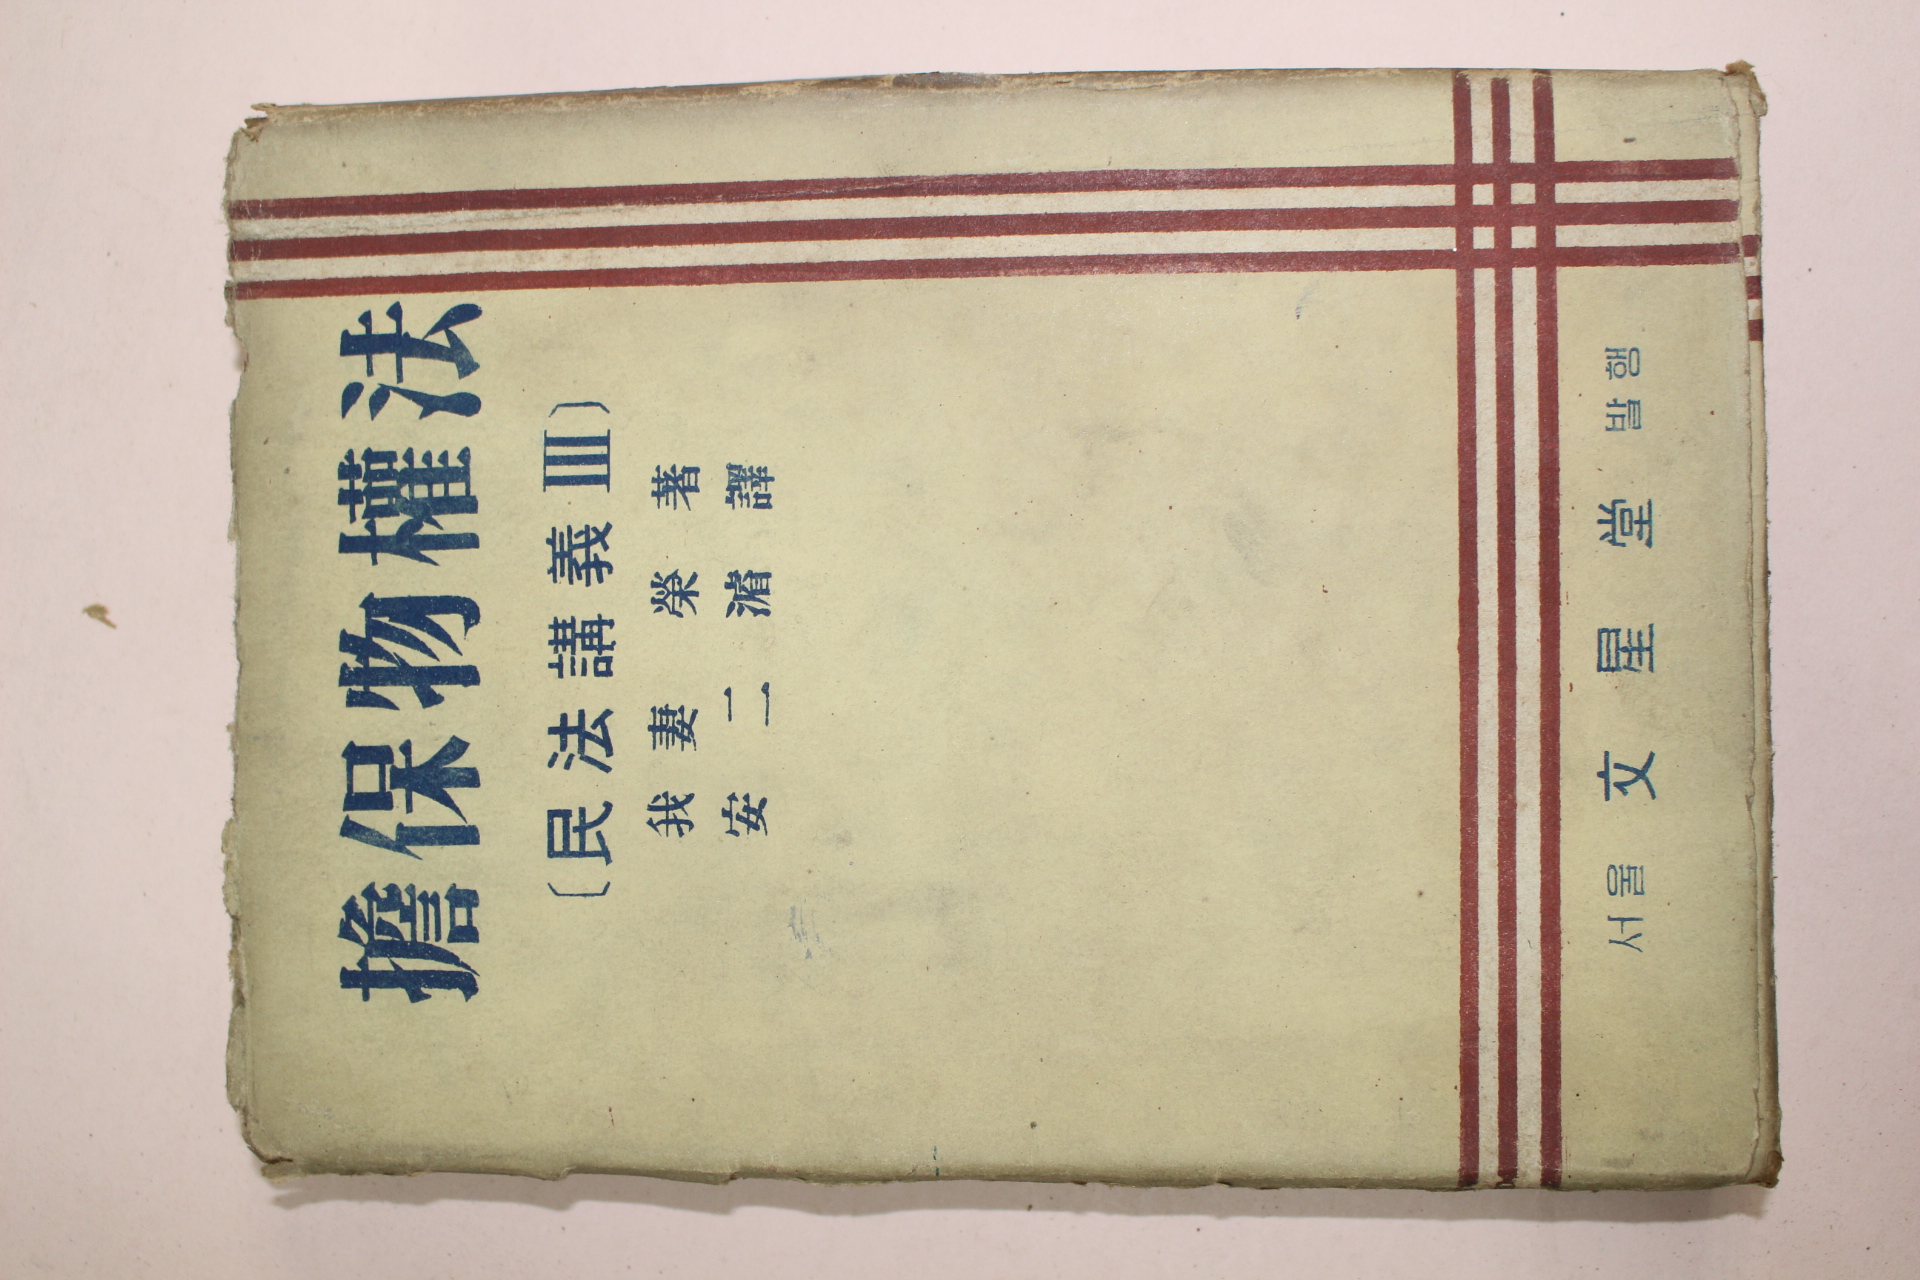 擔保物權法
〔民法講義Ⅲ〕
我妻榮 著
安二濬 譯
서울 文星堂 발행